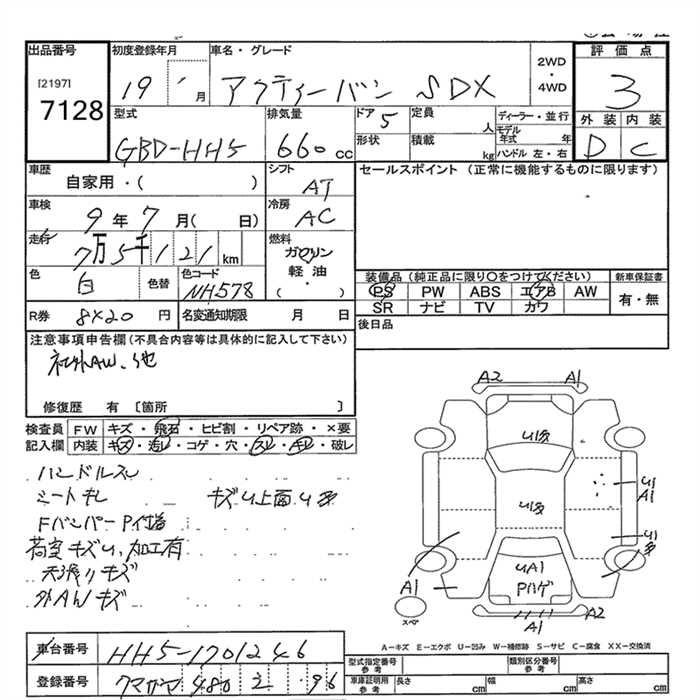 出品番号 初度登録年月 車名・グレード 2WD・4WD 評価点
[2197] 7128 19 月 アクティーバン SDX 3
型式 排気量 ドア 定員 ディーラー・並行 外装 内装
GBD-HH5 660cc 5 人 モデル年式 年 D C
形状 積載 kg ハンドル 左・右
車歴 シフト セールスポイント (正常に機能するものに限ります)
自家用・( ) AT
車検 冷房
9年7月( 日) AC
走行 燃料
7万5千121km ガソリン 軽油 ・( )
色 色替 色コード
白 NH578
装備品 (純正品に限り○をつけてください) 新車保証書
PS PW ABS エアB AW 有・無
SR ナビ TV カワ
R券 8×20円 名変通知期限 月 日 後日品
注意事項申告欄(不具合内容等は具体的に記入して下さい)
社外AW、他
修復歴 有 〔箇所 〕
検査員 FW キズ・飛石・ヒビ割・リペア跡・×要
記入欄 内装 キズ・汚レ・コゲ・穴・スレ・キレ・破レ
ハンドルスレ
シートキレ キズU上面U多
Fバンパー P付着
荷室キズU、加工有
天張リキズ
外AWキズ
A2 A1
U1多
U1 A1
U1多
U1多
UA1
Pハゲ
A1
スペア
A1 A2
A-キズ E-エクボ U-凹み W-補修跡 S-サビ C-腐食 XX-交換済
車台番号 HH5-1701246
型式指定番号 参考 類別区分番号 参考
登録番号 480 96
車庫証明用 参考 長さ cm 幅 cm 高さ cm